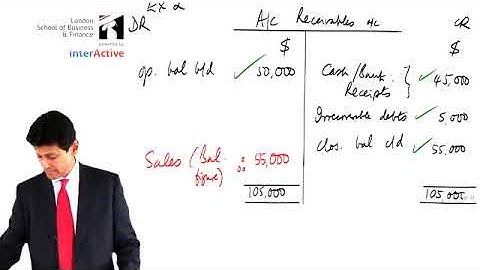 London
School of Business
& Finance
powered by
interActive
EX 2
DR A/C Receivables a/c CR
$ $
op. bal b/d 50,000
Cash/Bank Receipts 45,000
Irrecoverable debts 5,000
clos. bal c/d 55,000
Sales (Bal. figure) :: 55,000
105,000 105,000